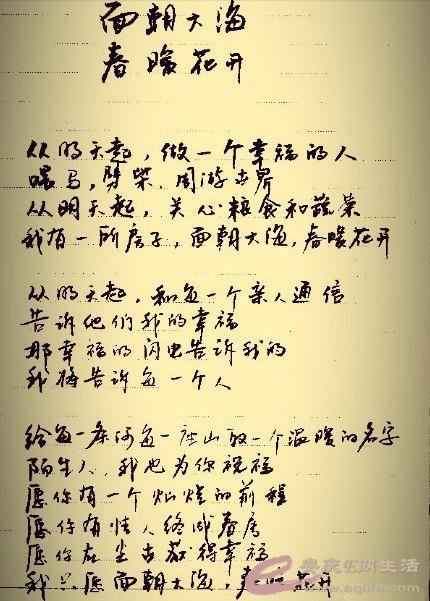 面朝大海
春暖花开
从明天起，做一个幸福的人
喂马，劈柴，周游世界
从明天起，关心粮食和蔬菜
我有一所房子，面朝大海，春暖花开
从明天起，和每一个亲人通信
告诉他们我的幸福
那幸福的闪电告诉我的
我将告诉每一个人
给每一条河每一座山取一个温暖的名字
陌生人，我也为你祝福
愿你有一个灿烂的前程
愿你有情人终成眷属
愿你在尘世获得幸福
我只愿面朝大海，春暖花开
安庆E网生活
www.aqlife.com